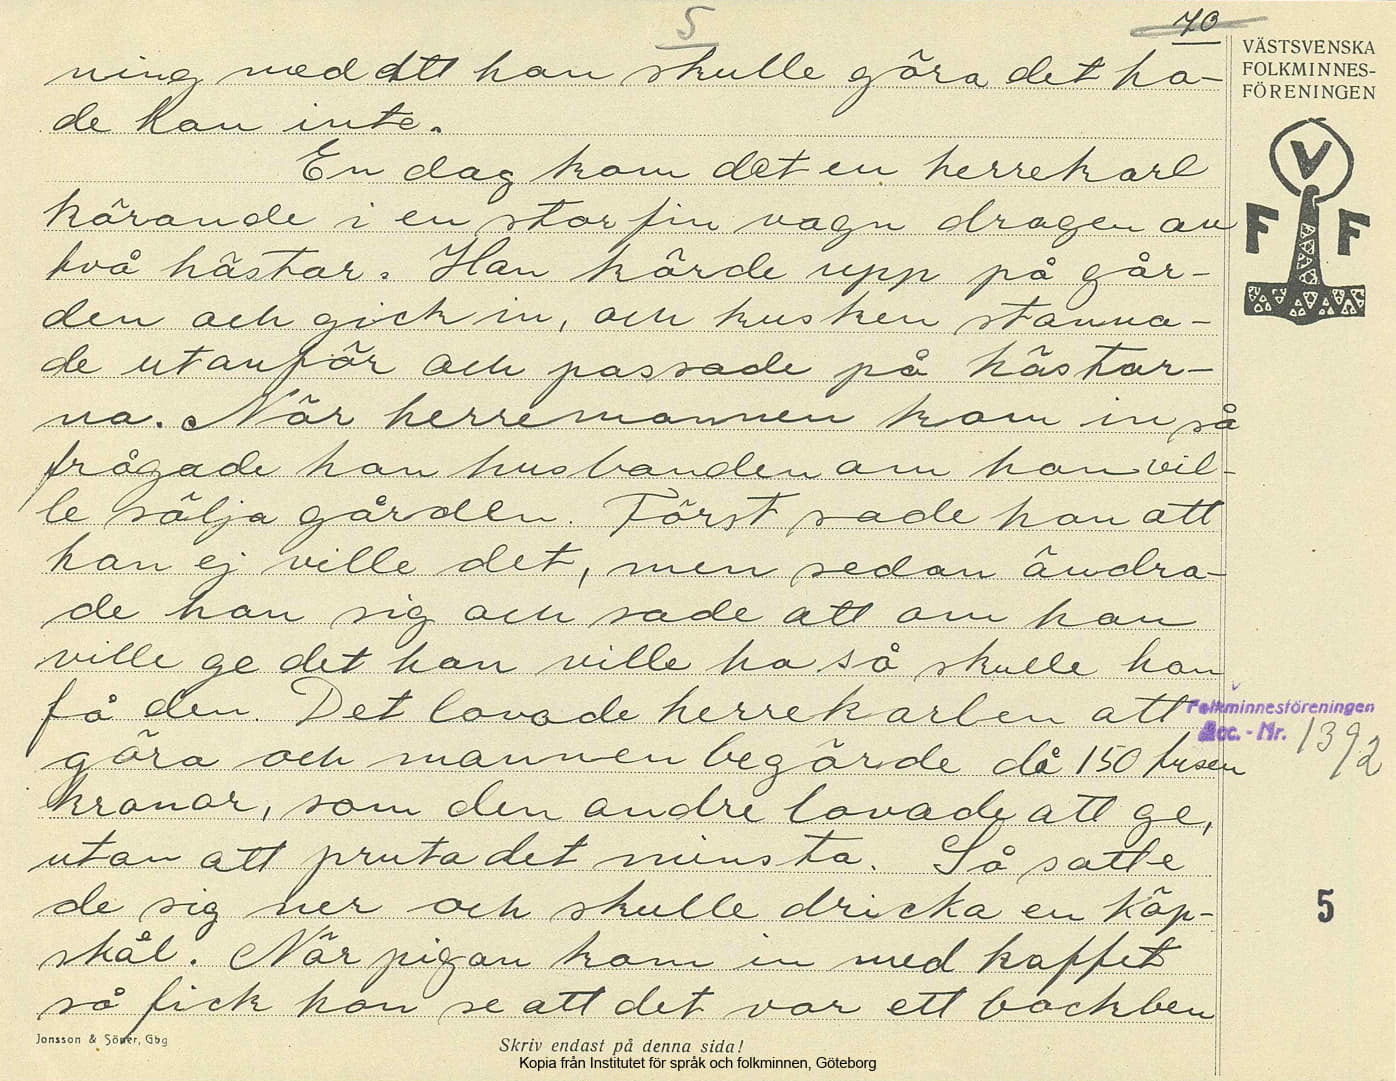 5
70
VÄSTSVENSKA
FOLKMINNES-
FÖRENINGEN
V
F F
ning med att han skulle göra det ha-
de han inte.
En dag kom det en herrekarl
körande i en stor fin vagn dragen av
två hästar. Han körde upp på går-
den och gick in, och kusken stanna-
de utanför och passade på hästar-
na. När herremannen kom in så
frågade han husbonden om han vil-
le sälja gården. Först sade han att
han ej ville det, men sedan ändra-
de han sig och sade att om han
ville ge det han ville ha så skulle han
få den. Det lovade herrekarlen att
göra och mannen begärde då 150 tusen
kronor, som den andre lovade att ge,
utan att pruta det minsta. Så satte
de sig ner och skulle dricka en köp-
skål. När pigan kom in med kaffet
så fick hon se att det var ett bockben
Folkminnesföreningen
Acc.-Nr. 1392
5
Jonsson & Söner, Gbg
Skriv endast på denna sida!
Kopia från Institutet för språk och folkminnen, Göteborg